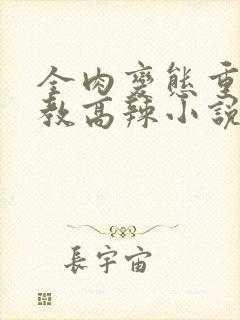 全肉變態重
教高辣小説
長宇宙